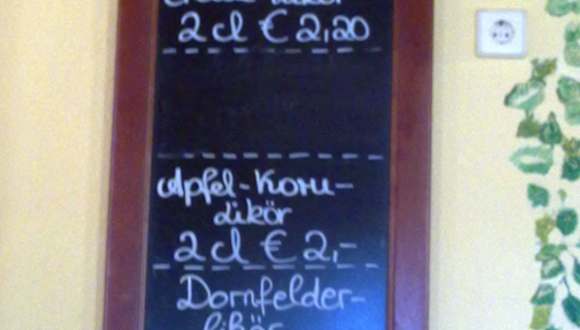 2 cl € 2,20
Apfel-Korn-
Likör
2 cl € 2,-
Dornfelder-
likör